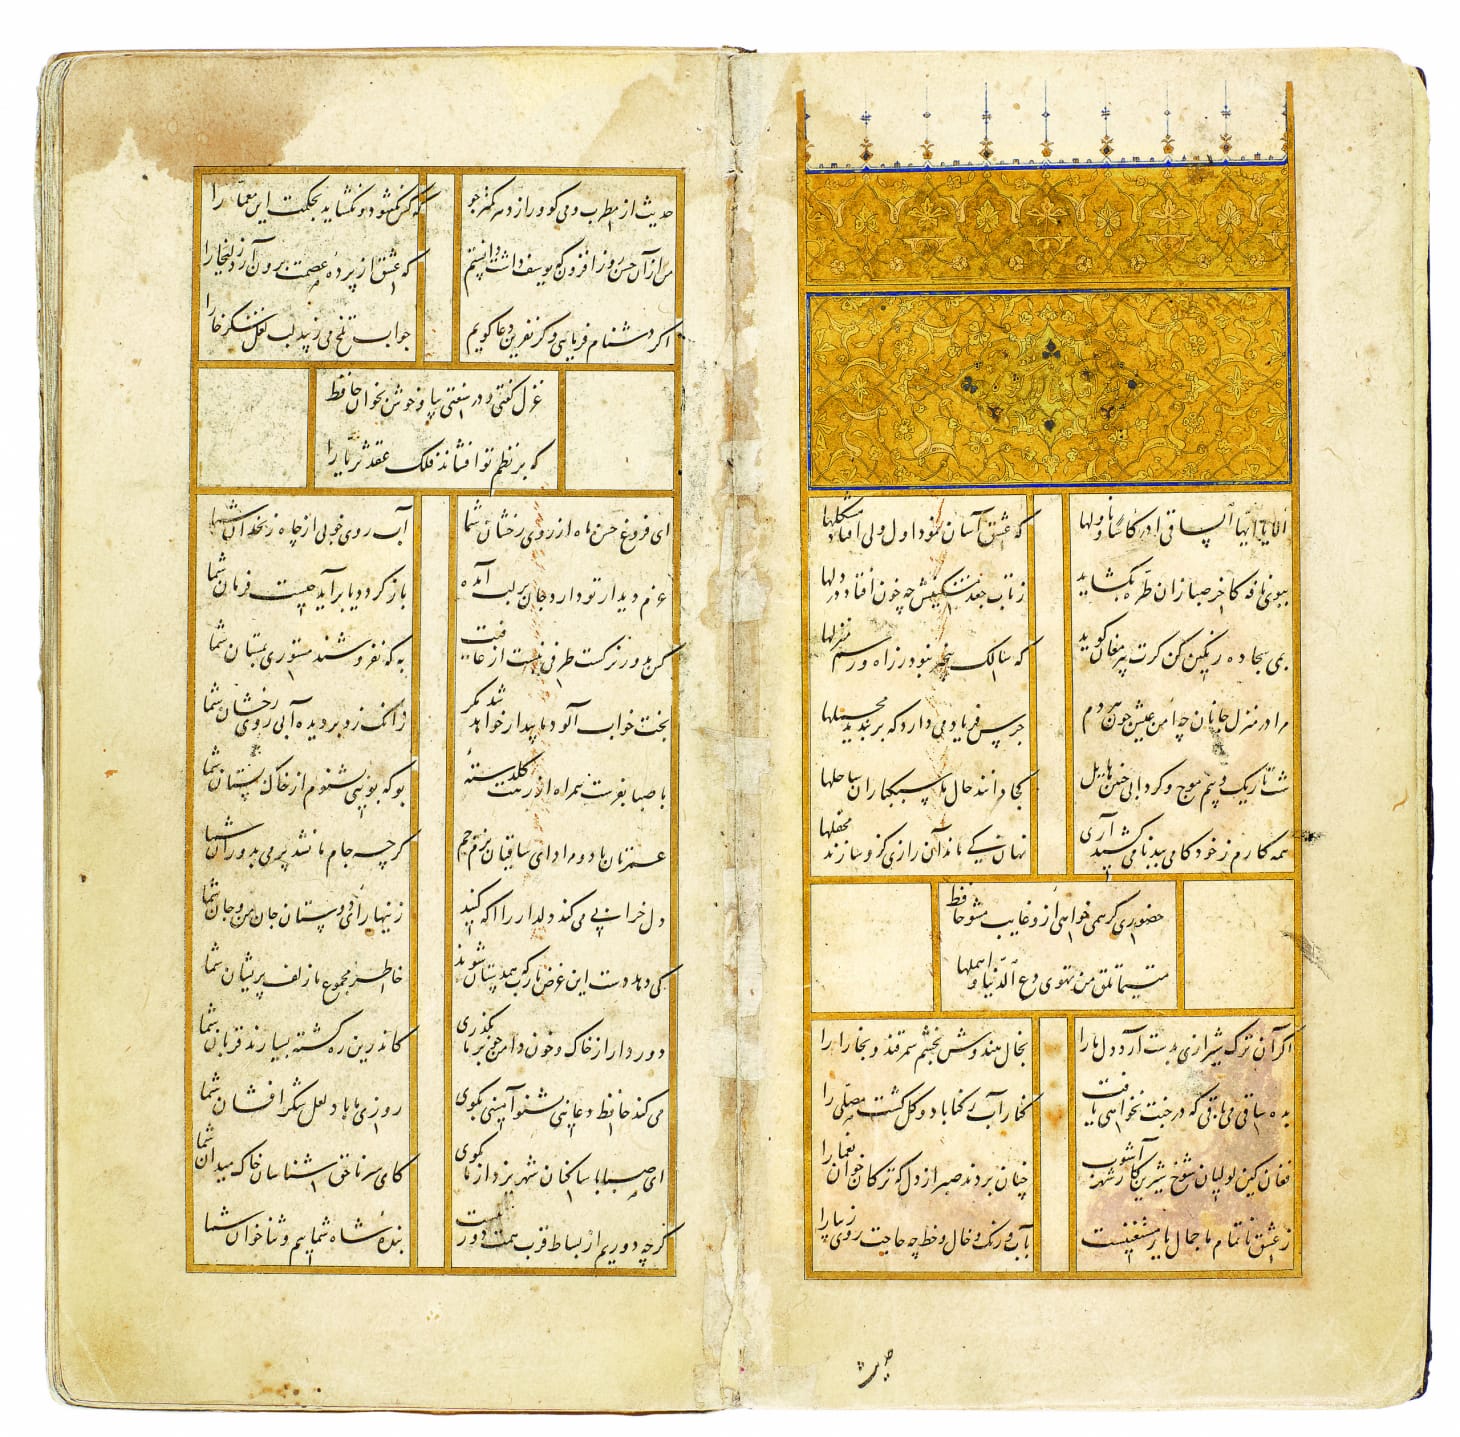 الا یا ایها الساقی ادر کاسا و ناولها که عشق آسان نمود اول ولی افتاد مشکلها
ببوی نافه کاخر صبا زان طره بکشاید ز تاب جعد مشکینش چه خون افتاد در دلها
بمی سجاده رنکین کن کرت پیر مغان کوید که سالک بیخبر نبود ز راه و رسم منزلها
مرا در منزل جانان چه امن عیش چون هر دم جرس فریاد می دارد که بربندید محملها
شب تاریک و بیم موج و کردابی چنین هایل کجا دانند حال ما سبکباران ساحلها
همه کارم ز خود کامی ببدنامی کشید آری نهان کی ماند آن رازی کزو سازند محفلها
حضوری کر همی خواهی ازو غایب مشو حافظ
متی ما تلق من تهوی دع الدنیا و اهملها
اکر آن ترک شیرازی بدست آرد دل ما را بخال هندوش بخشم سمرقند و بخارا را
بده ساقی می باقی که در جنت نخواهی یافت کنار آب رکناباد و کلکشت مصلی را
فغان کین لولیان شوخ شیرین کار شهر آشوب چنان بردند صبر از دل که ترکان خوان یغما را
ز عشق ناتمام ما جمال یار مستغنیست بآب و رنک و خال و خط چه حاجت روی زیبا را
حدیث
حدیث از مطرب و می کو و راز دهر کمتر جو که کس نکشود و نکشاید بحکمت این معما را
من از آن حسن روز افزون که یوسف داشت دانستم که عشق از پرده عصمت برون آرد زلیخا را
اکر دشنام فرمایی و کر نفرین دعا کویم جواب تلخ می زیبد لب لعل شکرخا را
غزل کفتی و در سفتی بیا و خوش بخوان حافظ
که بر نظم تو افشاند فلک عقد ثریا را
ای فروغ حسن ماه از روی رخشان شما آب روی خوبی از چاه زنخدان شما
عزم دیدار تو دارد جان بر لب آمده باز کردد یا برآید چیست فرمان شما
کس بدور نرکست طرفی نبست از عافیت به که نفروشند مستوری بمستان شما
بخت خواب آلود ما بیدار خواهد شد مکر زانک زد بر دیده آبی روی رخشان شما
با صبا بفرست همراه از رخت کلدسته بو که بویی بشنوم از خاک بستان شما
عمرتان باد و مراد ای ساقیان بزم جم کرچه جام ما نشد پر می بدوران شما
دل خرابی می کند دلدار را اکه کنید زینهار ای دوستان جان من و جان شما
کی دهد دست این غرض یارب که همدستان شوند خاطر مجموع ما زلف پریشان شما
دور دار از خاک و خون دامن چو بر ما بکذری کاندرین ره کشته بسیارند قربان شما
می کند حافظ دعایی بشنو آمینی بکوی روزی ما باد لعل شکر افشان شما
ای صبا با ساکنان شهر یزد از ما بکوی کای سر ناحق شناسان خاک میدان شما
کرچه دوریم از بساط قرب همت دور نیست بنده شاه شماییم و ثناخوان شما